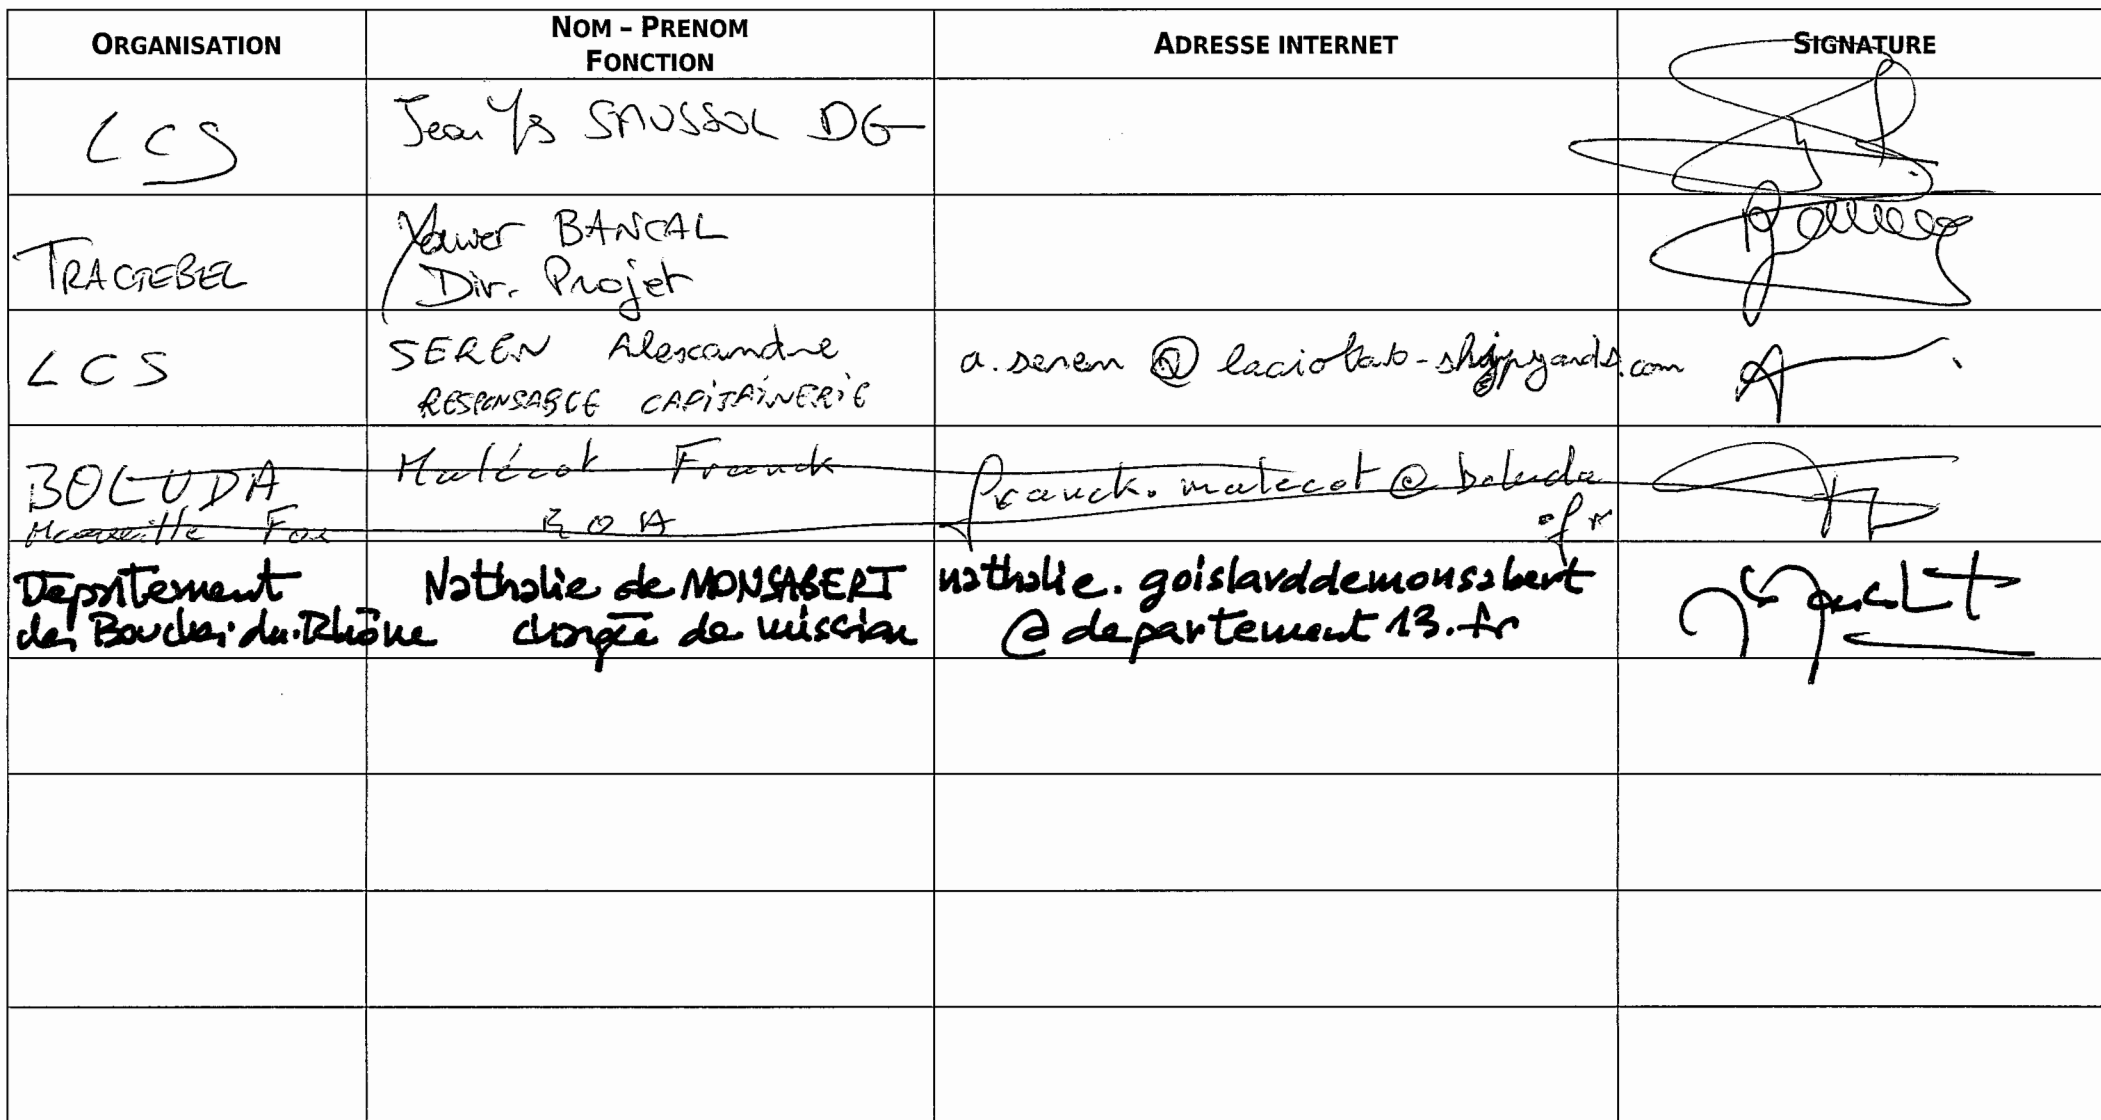 ORGANISATION
NOM – PRENOM
FONCTION
ADRESSE INTERNET
SIGNATURE
LCS
Jean Ys SAUSSOL DG
TRACTEBEL
Xavier BANCAL
Dir. Projet
LCS
SEREN Alexandre
RESPONSABLE CAPITAINERIE
a.seren @ laciotat-shipyards.com
BOLUDA
Marseille Fos
Malécot Franck
franck.malecot @ boluda
.fr
Département
des Bouches-du-Rhône
Nathalie de MONSABERT
chargée de mission
nathalie.goislarddemonsabert
@departement13.fr